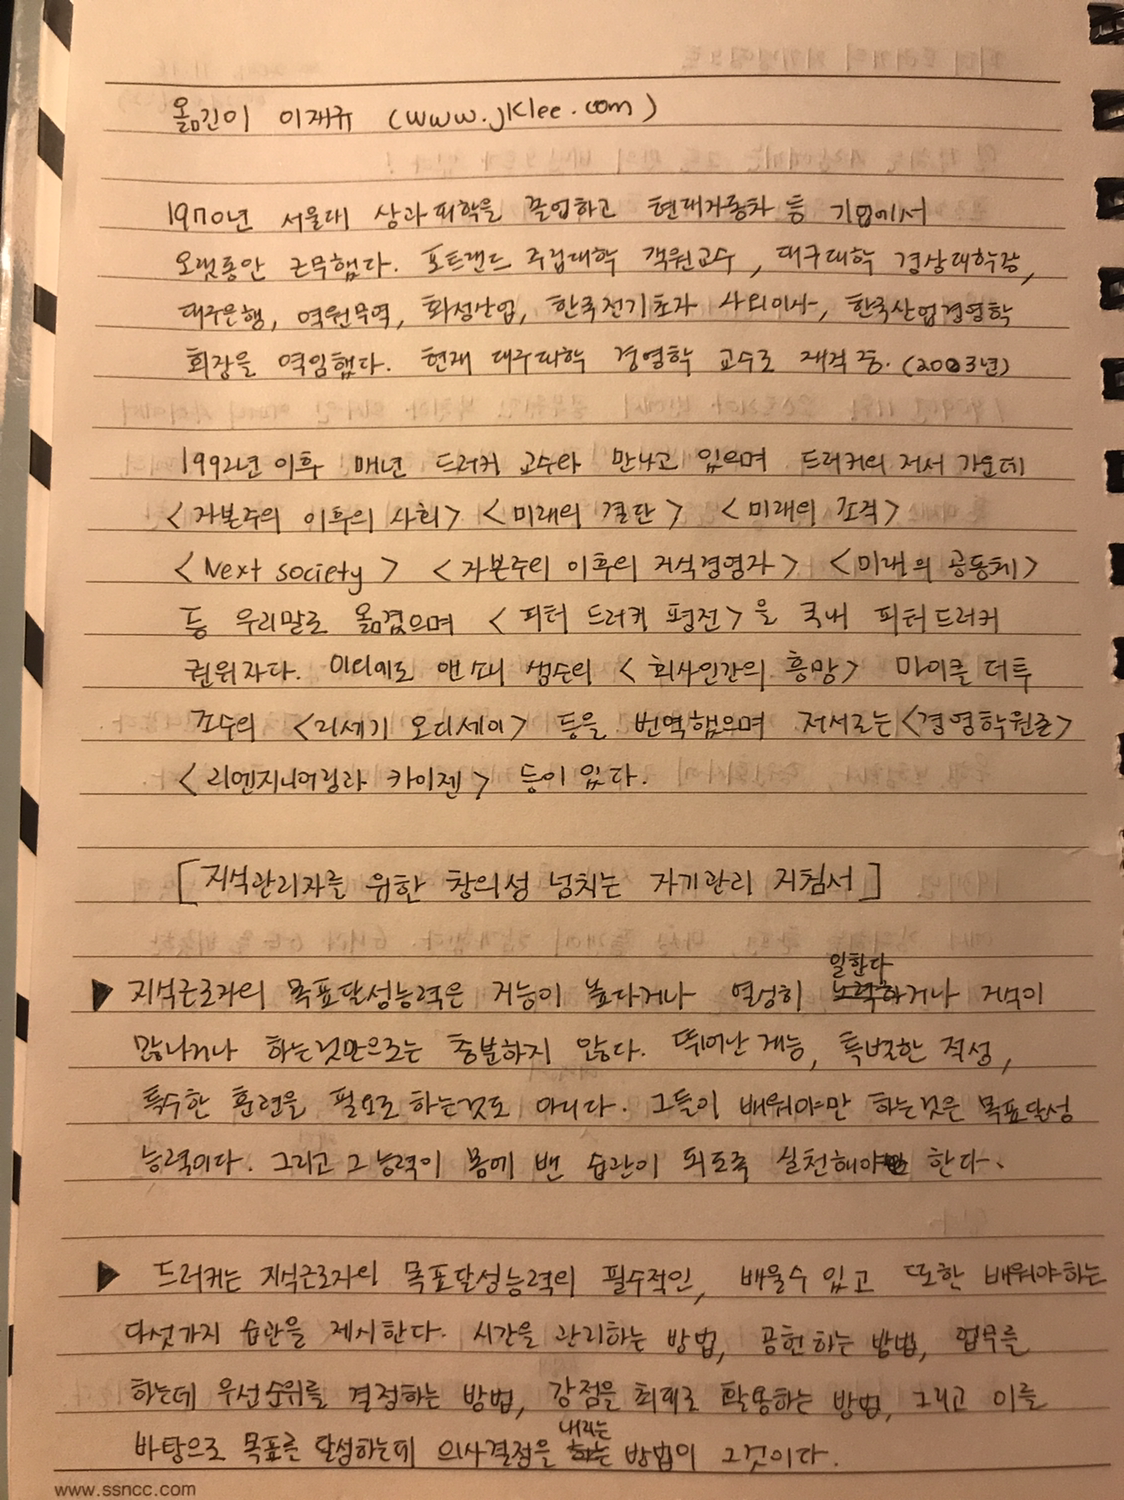 옮긴이 이재규 (www.jklee.com)
1970년 서울대 상과대학을 졸업하고 현대자동차 등 기업에서
오랫동안 근무했다. 포트랜드 주립대학 객원교수, 대구대학 경상대학장,
대구은행, 역원무역, 화성산업, 한국전기초자 사외이사, 한국산업경영학
회장을 역임했다. 현재 대구대학 경영학 교수로 재직 중. (2003년)
1992년 이후 매년 드러커 교수와 만나고 있으며 드러커의 저서 가운데
<자본주의 이후의 사회> <미래의 결단> <미래의 조직>
<Next society> <자본주의 이후의 지식경영자> <미래의 공동체>
등 우리말로 옮겼으며 <피터 드러커 평전>을 국내 피터드러커
권위자다. 이외에도 앤 소니 샘슨의 <회사인간의 흥망> 마이클 더투
조수의 <21세기 오디세이> 등을 번역했으며 저서로는 <경영학원론>
<리엔지니어링과 카이젠> 등이 있다.
[지식관리자를 위한 창의성 넘치는 자기관리 지침서]
▶ 지식근로자의 목표달성능력은 지능이 높다거나 열성히 일한다거나 지식이
많다거나 하는것만으로는 충분하지 않다. 뛰어난 재능, 특별한 적성,
특수한 훈련을 필요로 하는것도 아니다. 그들이 배워야만 하는것은 목표달성
능력이다. 그리고 그 능력이 몸에 밴 습관이 되도록 실천해야 한다.
▶ 드러커는 지식근로자의 목표달성능력의 필수적인, 배울수 있고 또한 배워야하는
다섯가지 습관을 제시한다. 시간을 관리하는 방법, 공헌하는 방법, 업무를
하는데 우선순위를 결정하는 방법, 강점을 최대로 활용하는 방법, 그리고 이를
바탕으로 목표를 달성하는데 의사결정을 내리는 방법이 그것이다.
www.ssncc.com